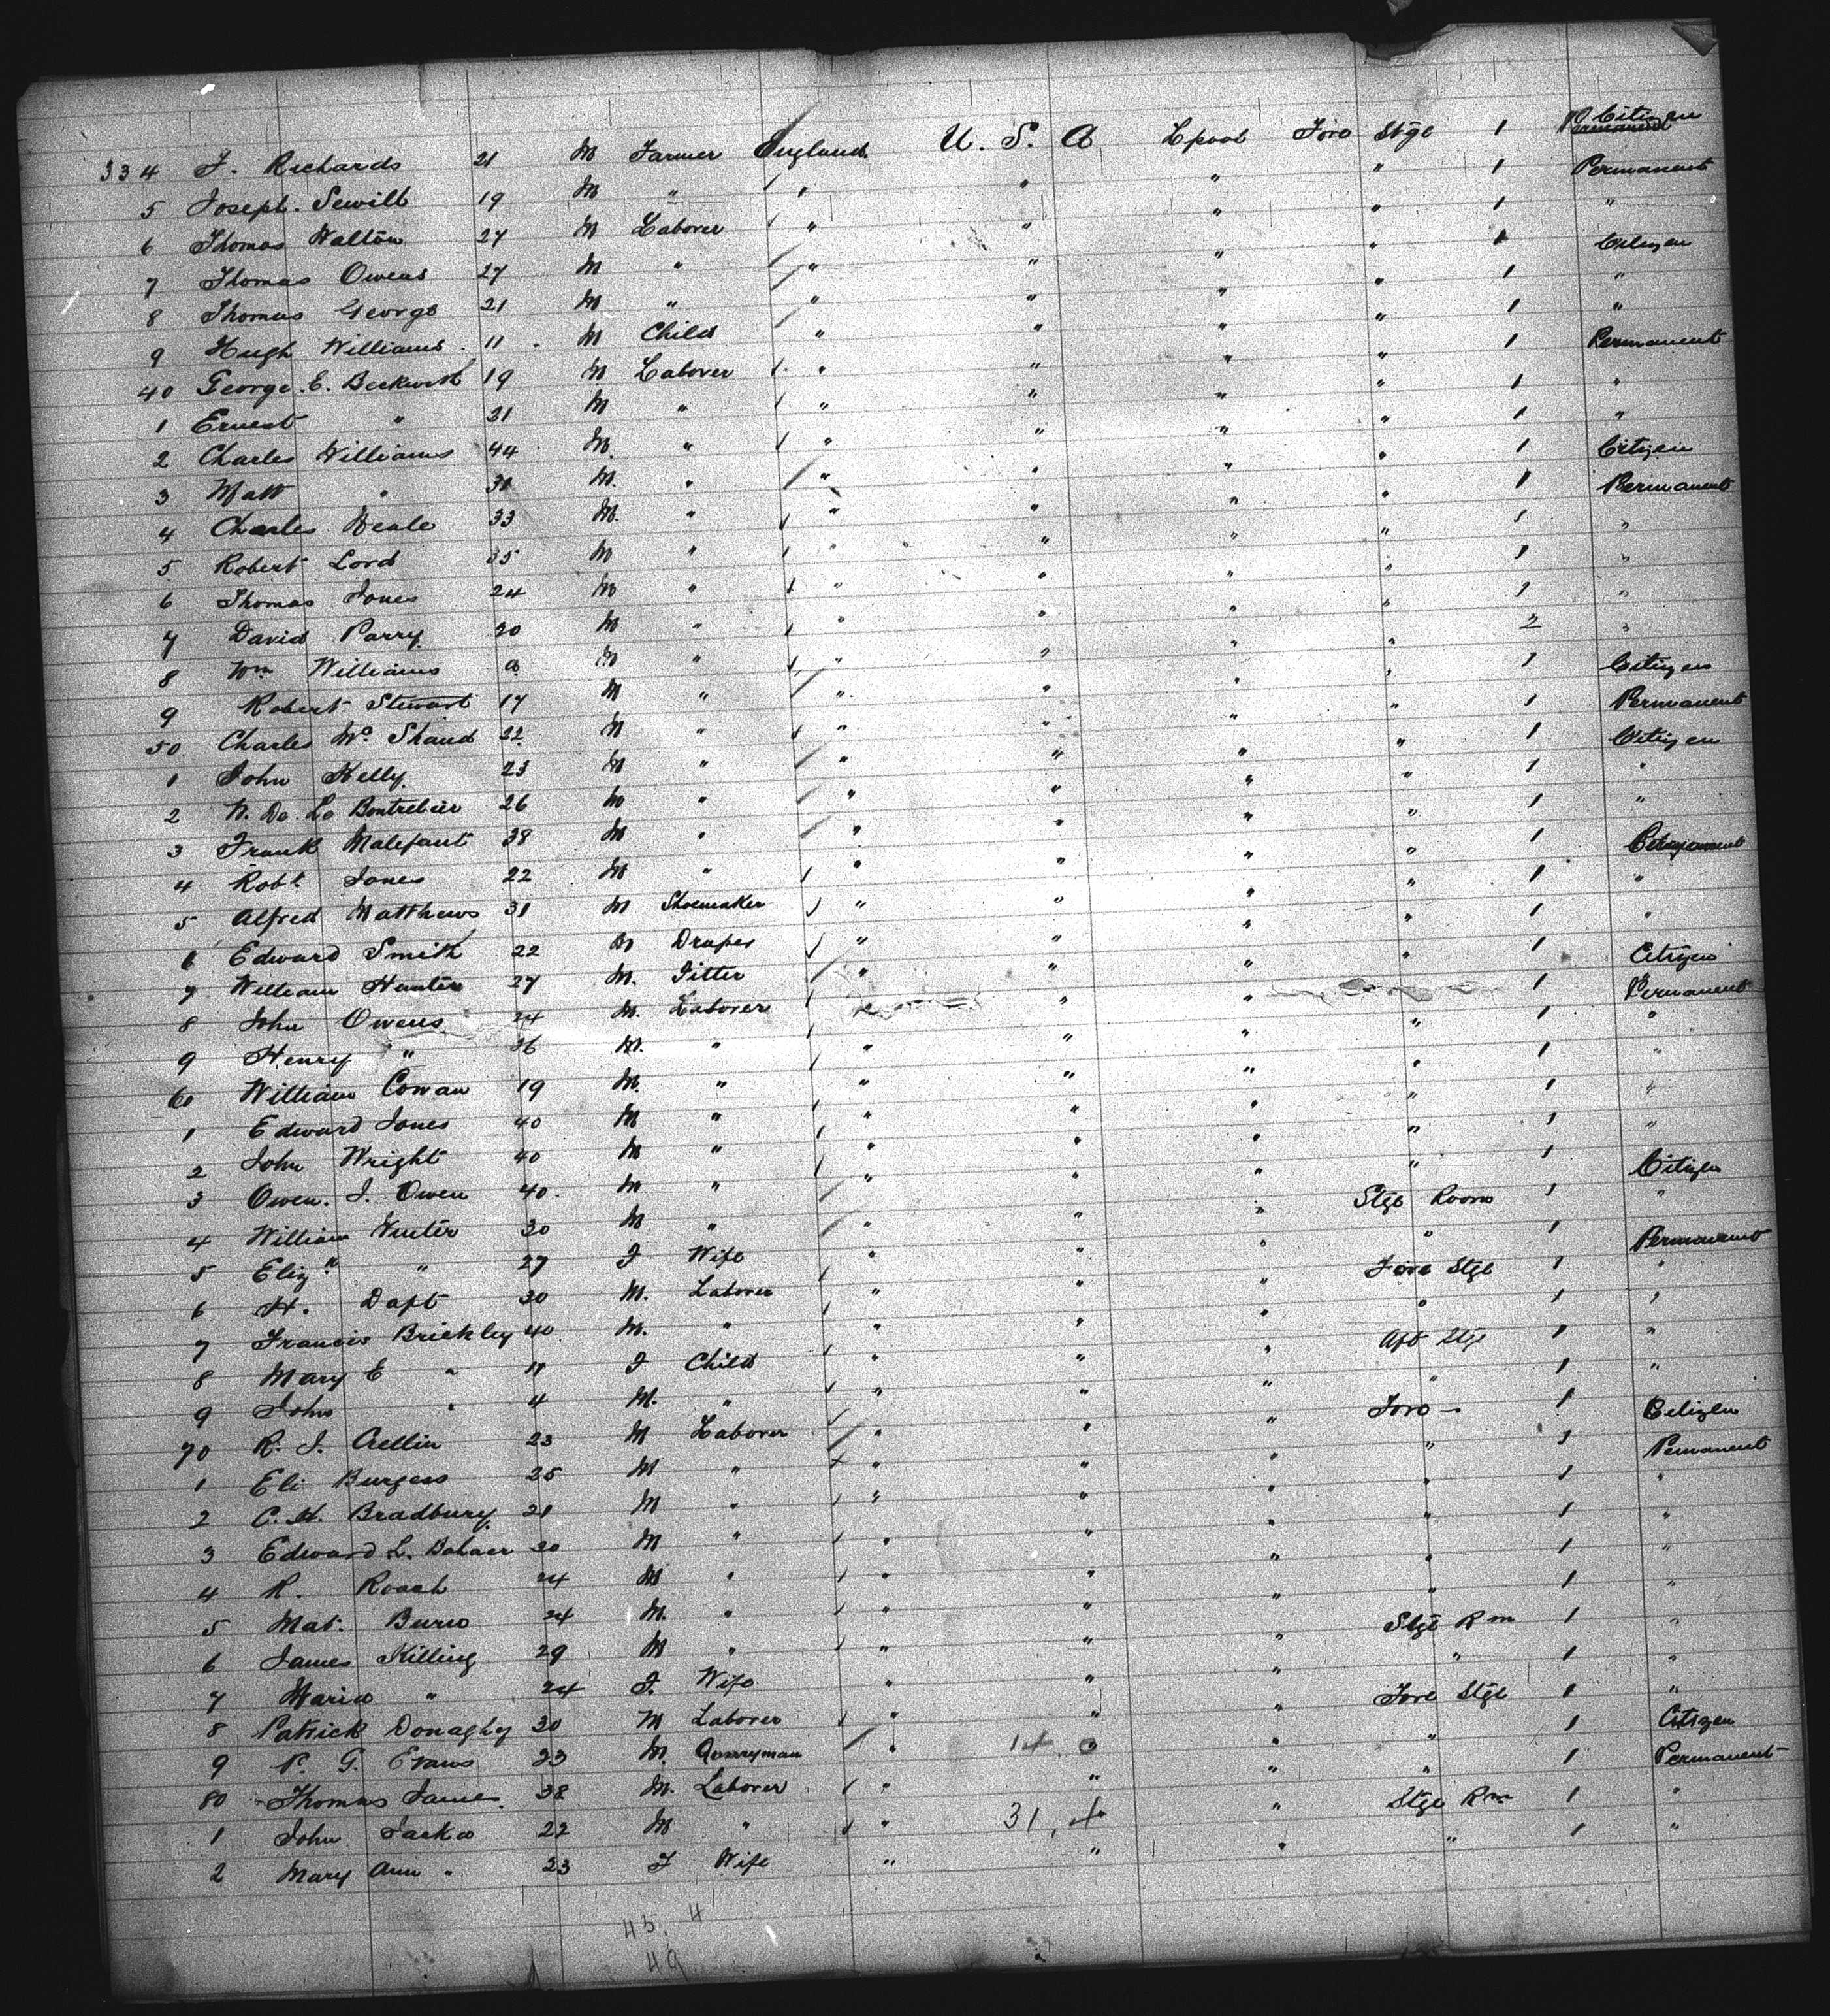 334 J. Richards 21 M Farmer England U. S. A Lpool Fore Stge 1 Citizen
5 Joseph Sewill 19 M " " " " " 1 Permanent
6 Thomas Walton 27 M Laborer " " " " 1 "
7 Thomas Owens 27 M " " " " " 1 Citizen
8 Thomas George 21 M " " " " " 1 "
9 Hugh Williams 11 M Child " " " " 1 "
40 George E. Beckwith 19 M Laborer " " " " 1 Permanent
1 Ernest " 21 M " " " " " 1 "
2 Charles Williams 44 M. " " " " " 1 "
3 Matt " M. " " " " " 1 Citizen
4 Charles Neale 33 M. " " " " " 1 Permanent
5 Robert Lord 35 M " " " " " 1 "
6 Thomas Jones 24 M " " " " " 1 "
7 David Parry 20 M " " " " " 1 "
8 Wm Williams M " " " " " 2 "
9 Robert Stewart 17 M " " " " " 1 Citizen
50 Charles Mc Shand 22 M " " " " " 1 Permanent
1 John Kelly 23 M " " " " " 1 Citizen
2 26 M " " " " " 1 "
3 Frank Malefant 38 M " " " " " 1 "
4 Robt Jones 22 M " " " " " 1
5 Alfred Matthews 31 M Shoemaker " " " " 1 "
6 Edward Smith 22 M Draper " " " " 1 "
7 William Hunter 27 M. Fitter " " " " 1 Citizen
8 John Owens 24 M. Laborer " " 1 Permanent
9 Henry " 26 M. " " " " " 1 "
60 William Cowan 19 M. " " " " " 1 "
1 Edward Jones 40 M " " " " " 1 "
2 John Wright 40 M " " " " " 1 "
3 Owen. J. Owen 40. M " " " " " 1 Citizen
4 William Winter 30 M " " " " Stge Room 1 "
5 Elizh " 27 F Wife " " " " 1 Permanent
6 H. Daft 20 M. Laborer " " " Fore Stge 1 "
7 Francis Brickley 40 M. " " " " " 1 "
8 Mary E " 11 F Child " " " Aft Stge 1 "
9 John " 4 M. " " " " " 1 "
70 R. J. Crellin 23 M Laborer " " " Fore " 1 Citizen
1 Eli Burgess 25 M " " " " " 1 Permanent
2 C. H. Bradbury 21 M " " " " " 1 "
3 Edward L. 20 M " " " " " 1 "
4 R. Roach 24 M " " " " " 1 "
5 Mat. 24 M. " " " " " 1 "
6 James Killing 29 M " " " " Stge Rm 1 "
7 Maria " 24 F. Wife " " " " 1 "
8 Patrick Donaghy 30 M Laborer " " " Fore Stge 1 "
9 P. G. Evans 23 M. Quarryman " " " " 1 Citizen
14
80 Thomas James 38 M. Laborer " " " " 1 Permanent
1 John Jacka 22 M " " " " Stge Rm 1 "
31. 4
2 Mary Ann " 23 F Wife " " " " 1 "
45. 4
49